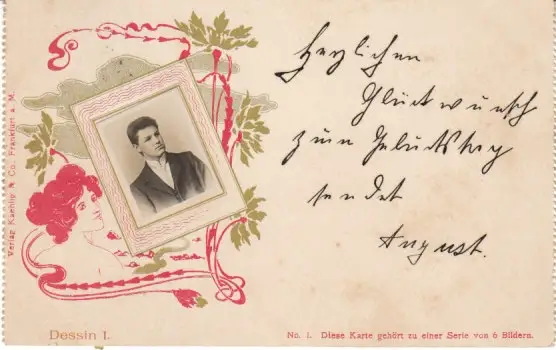 Herzlichen
Glückwunsch
zum Geburtstag
sendet
August.
Verlag Kuehlig & Co., Frankfurt a. M.
Dessin 1.
No. 1. Diese Karte gehört zu einer Serie von 6 Bildern.